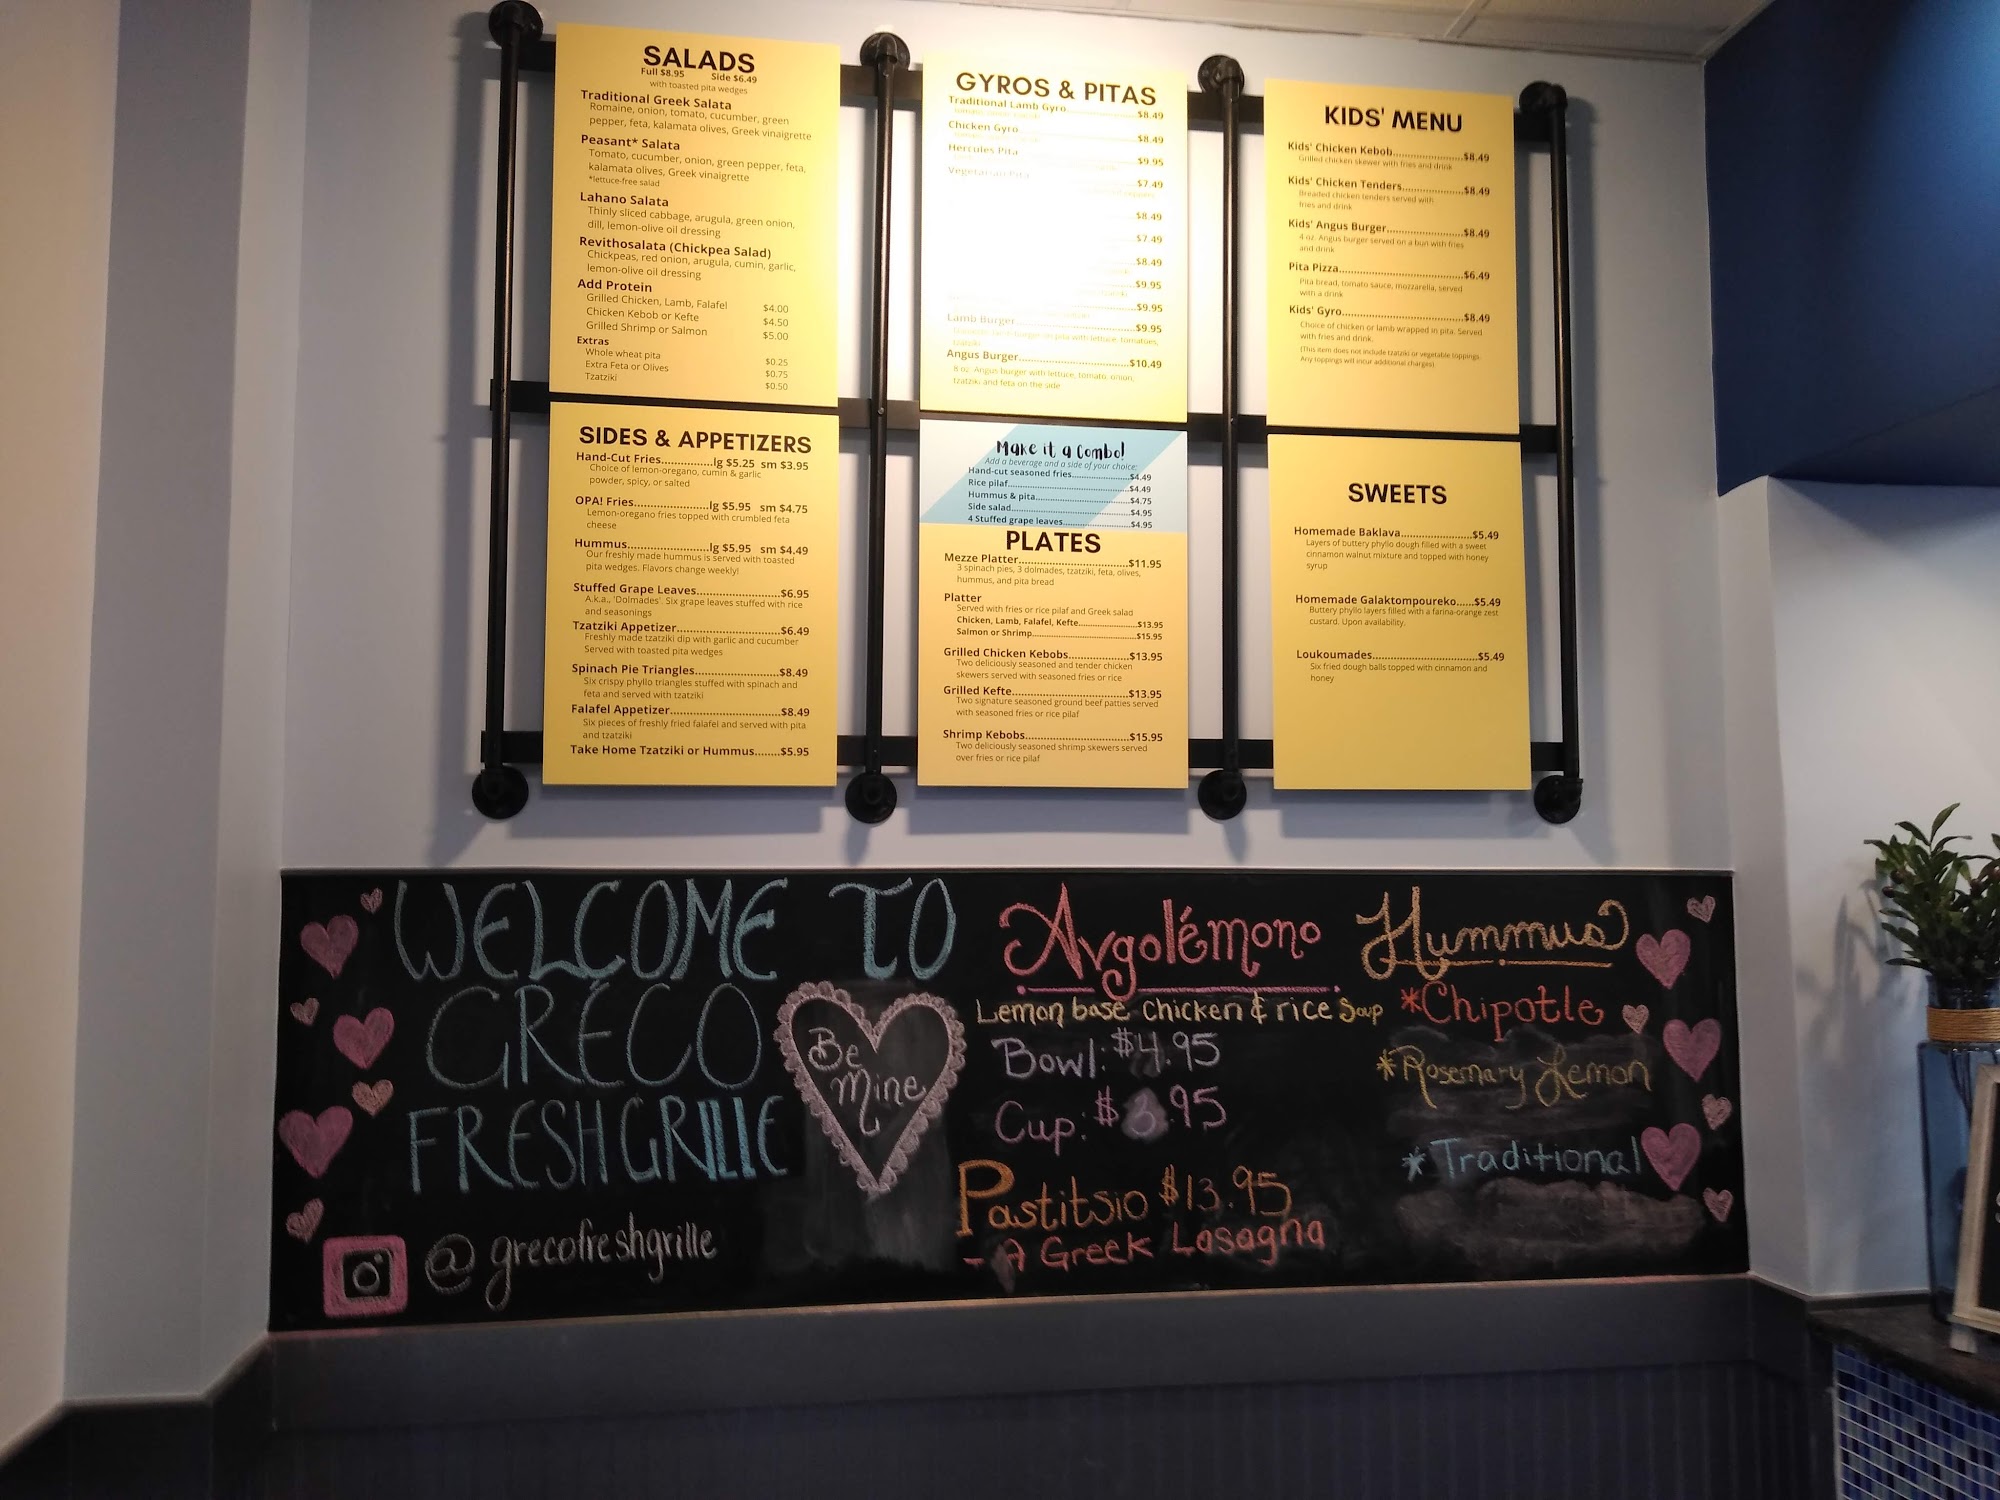 SALADS
Full $8.95 Side $6.49
with toasted pita wedges
Traditional Greek Salata
Romaine, onion, tomato, cucumber, green
pepper, feta, kalamata olives, Greek vinaigrette
Peasant* Salata
Tomato, cucumber, onion, green pepper, feta,
kalamata olives, Greek vinaigrette
*lettuce-free salad
Lahano Salata
Thinly sliced cabbage, arugula, green onion,
dill, lemon-olive oil dressing
Revithosalata (Chickpea Salad)
Chickpeas, red onion, arugula, cumin, garlic,
lemon-olive oil dressing
Add Protein
Grilled Chicken, Lamb, Falafel $4.00
Chicken Kebob or Kefte $4.50
Grilled Shrimp or Salmon $5.00
Extras
Whole wheat pita $0.25
Extra Feta or Olives $0.75
Tzatziki $0.50
SIDES & APPETIZERS
Hand-Cut Fries................lg $5.25 sm $3.95
Choice of lemon-oregano, cumin & garlic
powder, spicy, or salted
OPA! Fries.......................lg $5.95 sm $4.75
Lemon-oregano fries topped with crumbled feta
cheese
Hummus.........................lg $5.95 sm $4.49
Our freshly made hummus is served with toasted
pita wedges. Flavors change weekly!
Stuffed Grape Leaves............................$6.95
A.k.a., 'Dolmades'. Six grape leaves stuffed with rice
and seasonings
Tzatziki Appetizer..................................$6.49
Freshly made tzatziki dip with garlic and cucumber
Served with toasted pita wedges
Spinach Pie Triangles............................$8.49
Six crispy phyllo triangles stuffed with spinach and
feta and served with tzatziki
Falafel Appetizer...................................$8.49
Six pieces of freshly fried falafel and served with pita
and tzatziki
Take Home Tzatziki or Hummus.......$5.95
GYROS & PITAS
Traditional Lamb Gyro....................$8.49
Chicken Gyro $8.49
Hercules Pita $9.95
Vegetarian Pita $7.49
$8.49
$7.49
$8.49
$9.95
$9.95
Lamb Burger..............................$9.95
Angus Burger............................$10.49
8 oz. Angus burger with lettuce, tomato, onion,
tzatziki and feta on the side
Make it a Combo!
Add a beverage and a side of your choice:
Hand-cut seasoned fries....................$4.49
Rice pilaf..........................................$4.49
Hummus & pita.................................$4.75
Side salad.........................................$4.95
4 Stuffed grape leaves.......................$4.95
PLATES
Mezze Platter..............................$11.95
3 spinach pies, 3 dolmades, tzatziki, feta, olives,
hummus, and pita bread
Platter
Served with fries or rice pilaf and Greek salad
Chicken, Lamb, Falafel, Kefte....................$13.95
Salmon or Shrimp....................................$15.95
Grilled Chicken Kebobs..................$13.95
Two deliciously seasoned and tender chicken
skewers served with seasoned fries or rice
Grilled Kefte.................................$13.95
Two signature seasoned ground beef patties served
with seasoned fries or rice pilaf
Shrimp Kebobs..............................$15.95
Two deliciously seasoned shrimp skewers served
over fries or rice pilaf
KIDS' MENU
Kids' Chicken Kebob......................$8.49
Grilled chicken skewer with fries and drink
Kids' Chicken Tenders...................$8.49
Breaded chicken tenders served with
fries and drink
Kids' Angus Burger.......................$8.49
4 oz. Angus burger served on a bun with fries
and drink
Pita Pizza......................................$6.49
Pita bread, tomato sauce, mozzarella, served
with a drink
Kids' Gyro.....................................$8.49
Choice of chicken or lamb wrapped in pita. Served
with fries and drink.
(This item does not include tzatziki or vegetable toppings.
Any toppings will incur additional charges)
SWEETS
Homemade Baklava......................$5.49
Layers of buttery phyllo dough filled with a sweet
cinnamon walnut mixture and topped with honey
syrup
Homemade Galaktompoureko......$5.49
Buttery phyllo layers filled with a farina-orange zest
custard. Upon availability.
Loukoumades..............................$5.49
Six fried dough balls topped with cinnamon and
honey
WELCOME TO
GRÉCO
FRESH GRILLE
Be
Mine
@grecofreshgrille
Avgolémono
Lemon base Chicken & rice Soup
Bowl: $4.95
Cup: $3.95
Pastitsio $13.95
- A Greek Lasagna
Hummus
*Chipotle
*Rosemary Lemon
*Traditional